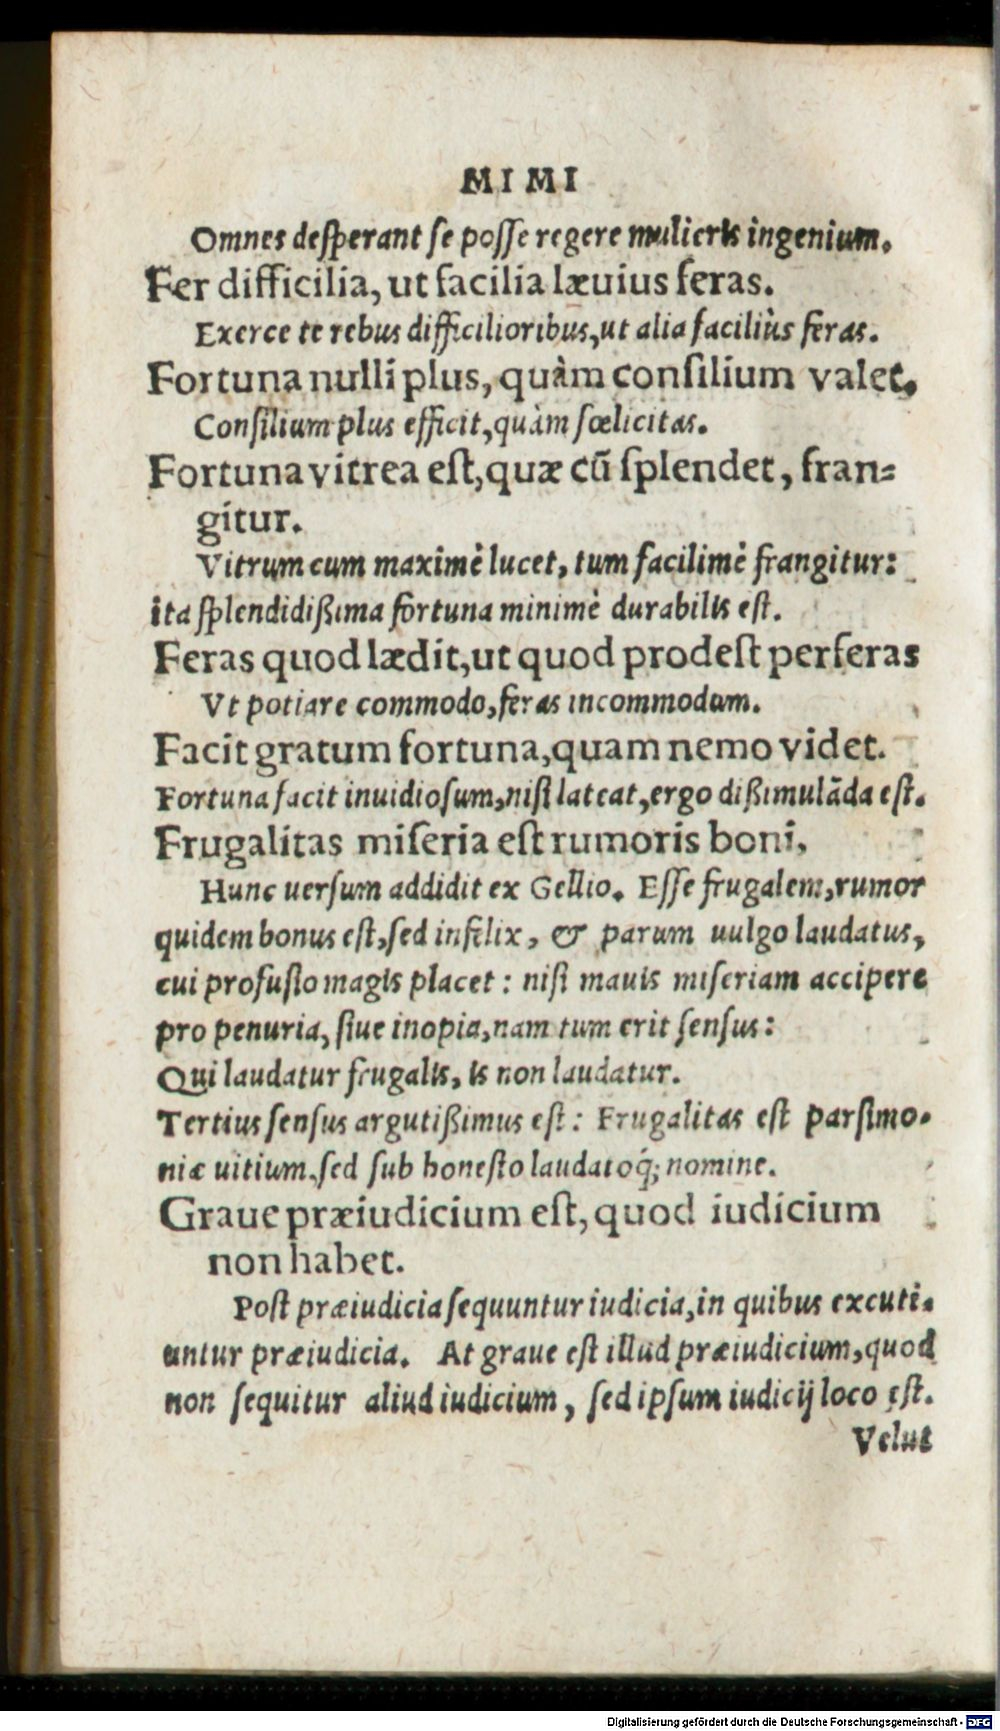 MIMI
Omnes desperant se posse regere mulieris ingenium.
Fer difficilia, ut facilia læuius feras.
Exerce te rebus difficilioribus, ut alia faciliùs feras.
Fortuna nulli plus, quàm consilium valet.
Consilium plus efficit, quàm fœlicitas.
Fortuna vitrea est, quæ cū splendet, fran-
gitur.
Vitrum cum maximè lucet, tum facilimè frangitur:
ita splendidißima fortuna minimè durabilis est.
Feras quod lædit, ut quod prodest perferas
Vt potiare commodo, feras incommodum.
Facit gratum fortuna, quam nemo videt.
Fortuna facit inuidiosum, nisi lateat, ergo dißimulāda est.
Frugalitas miseria est rumoris boni.
Hunc uersum addidit ex Gellio. Esse frugalem, rumor
quidem bonus est, sed infelix, & parum uulgo laudatus,
cui profusio magis placet: nisi mauis miseriam accipere
pro penuria, siue inopia, nam tum erit sensus:
Qui laudatur frugalis, is non laudatur.
Tertius sensus argutißimus est: Frugalitas est parsimo-
niæ uitium, sed sub honesto laudatoq́; nomine.
Graue præiudicium est, quod iudicium
non habet.
Post præiudicia sequuntur iudicia, in quibus excuti-
untur præiudicia. At graue est illud præiudicium, quod
non sequitur aliud iudicium, sed ipsum iudicij loco est.
Velut
Digitalisierung gefördert durch die Deutsche Forschungsgemeinschaft - DFG